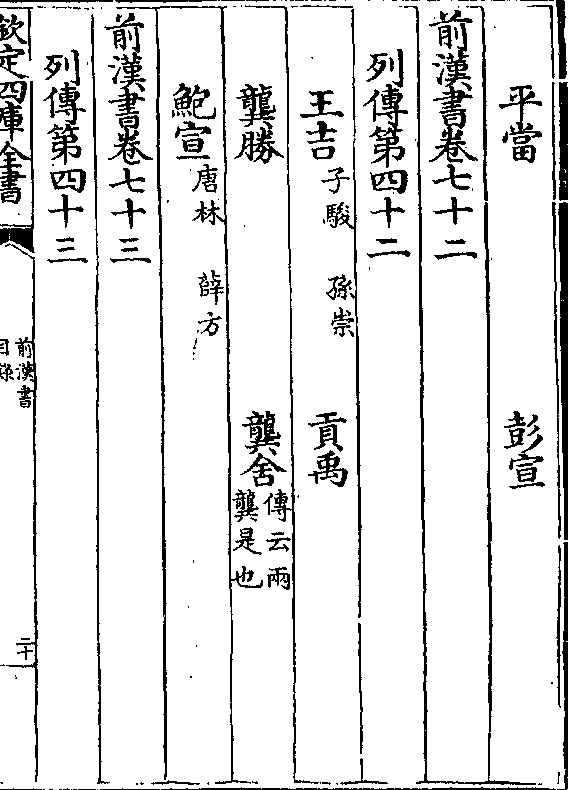 平當　彭宣
前漢書卷七十二
列傳第四十二
王吉子駿　孫崇　貢禹
龔勝　龔舍傳云兩龔是也
鮑宣唐林　薛方
前漢書卷七十三
列傳第四十三
欽定四庫全書
前漢書
目錄
二十